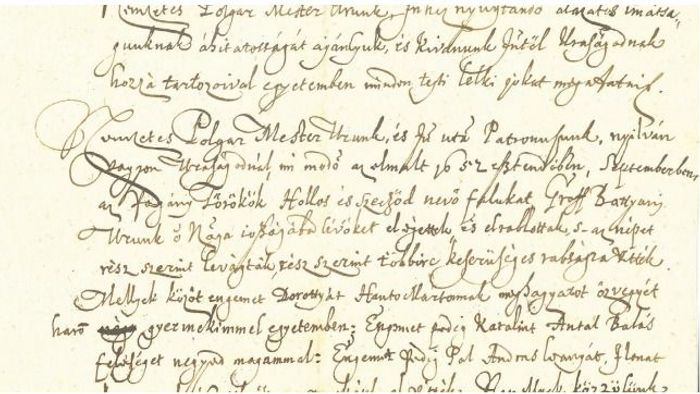 Nemzetes Polgar Mester Urunk, Istenhez nyuytando alazatos imatsa-
gunknak áhitatosságát ajánlyuk, és kivánunk Jstől Uraságodnak
hozzá tartozoival egyetemben minden testi lelki jókat megadatni.
Nemzetes Polgar Mester Urunk, és Js utá Patronusunk, nyilván
vagyon Uraságodnál, mi modō az elmalt 1652 esztendőben, Septemberben,
az Pogány Törökök Hollos és Szecsőd nevő falukat, Groff Battyani
Urunk ő Naga ioszágába lévőket el égettek és elrablottak, s az népet
rész szerint levágták, rész szerint többire keserűséges rabságra vitték
Mellyek között engemet Dorottyát meghagyatot özvegyét
harō gyermekimmel egyetemben: Engemet pedig Katalint Antal Balás
feleséget negyed magammal: Engemet Pedig Pal Andras Leanyát, Ilonat